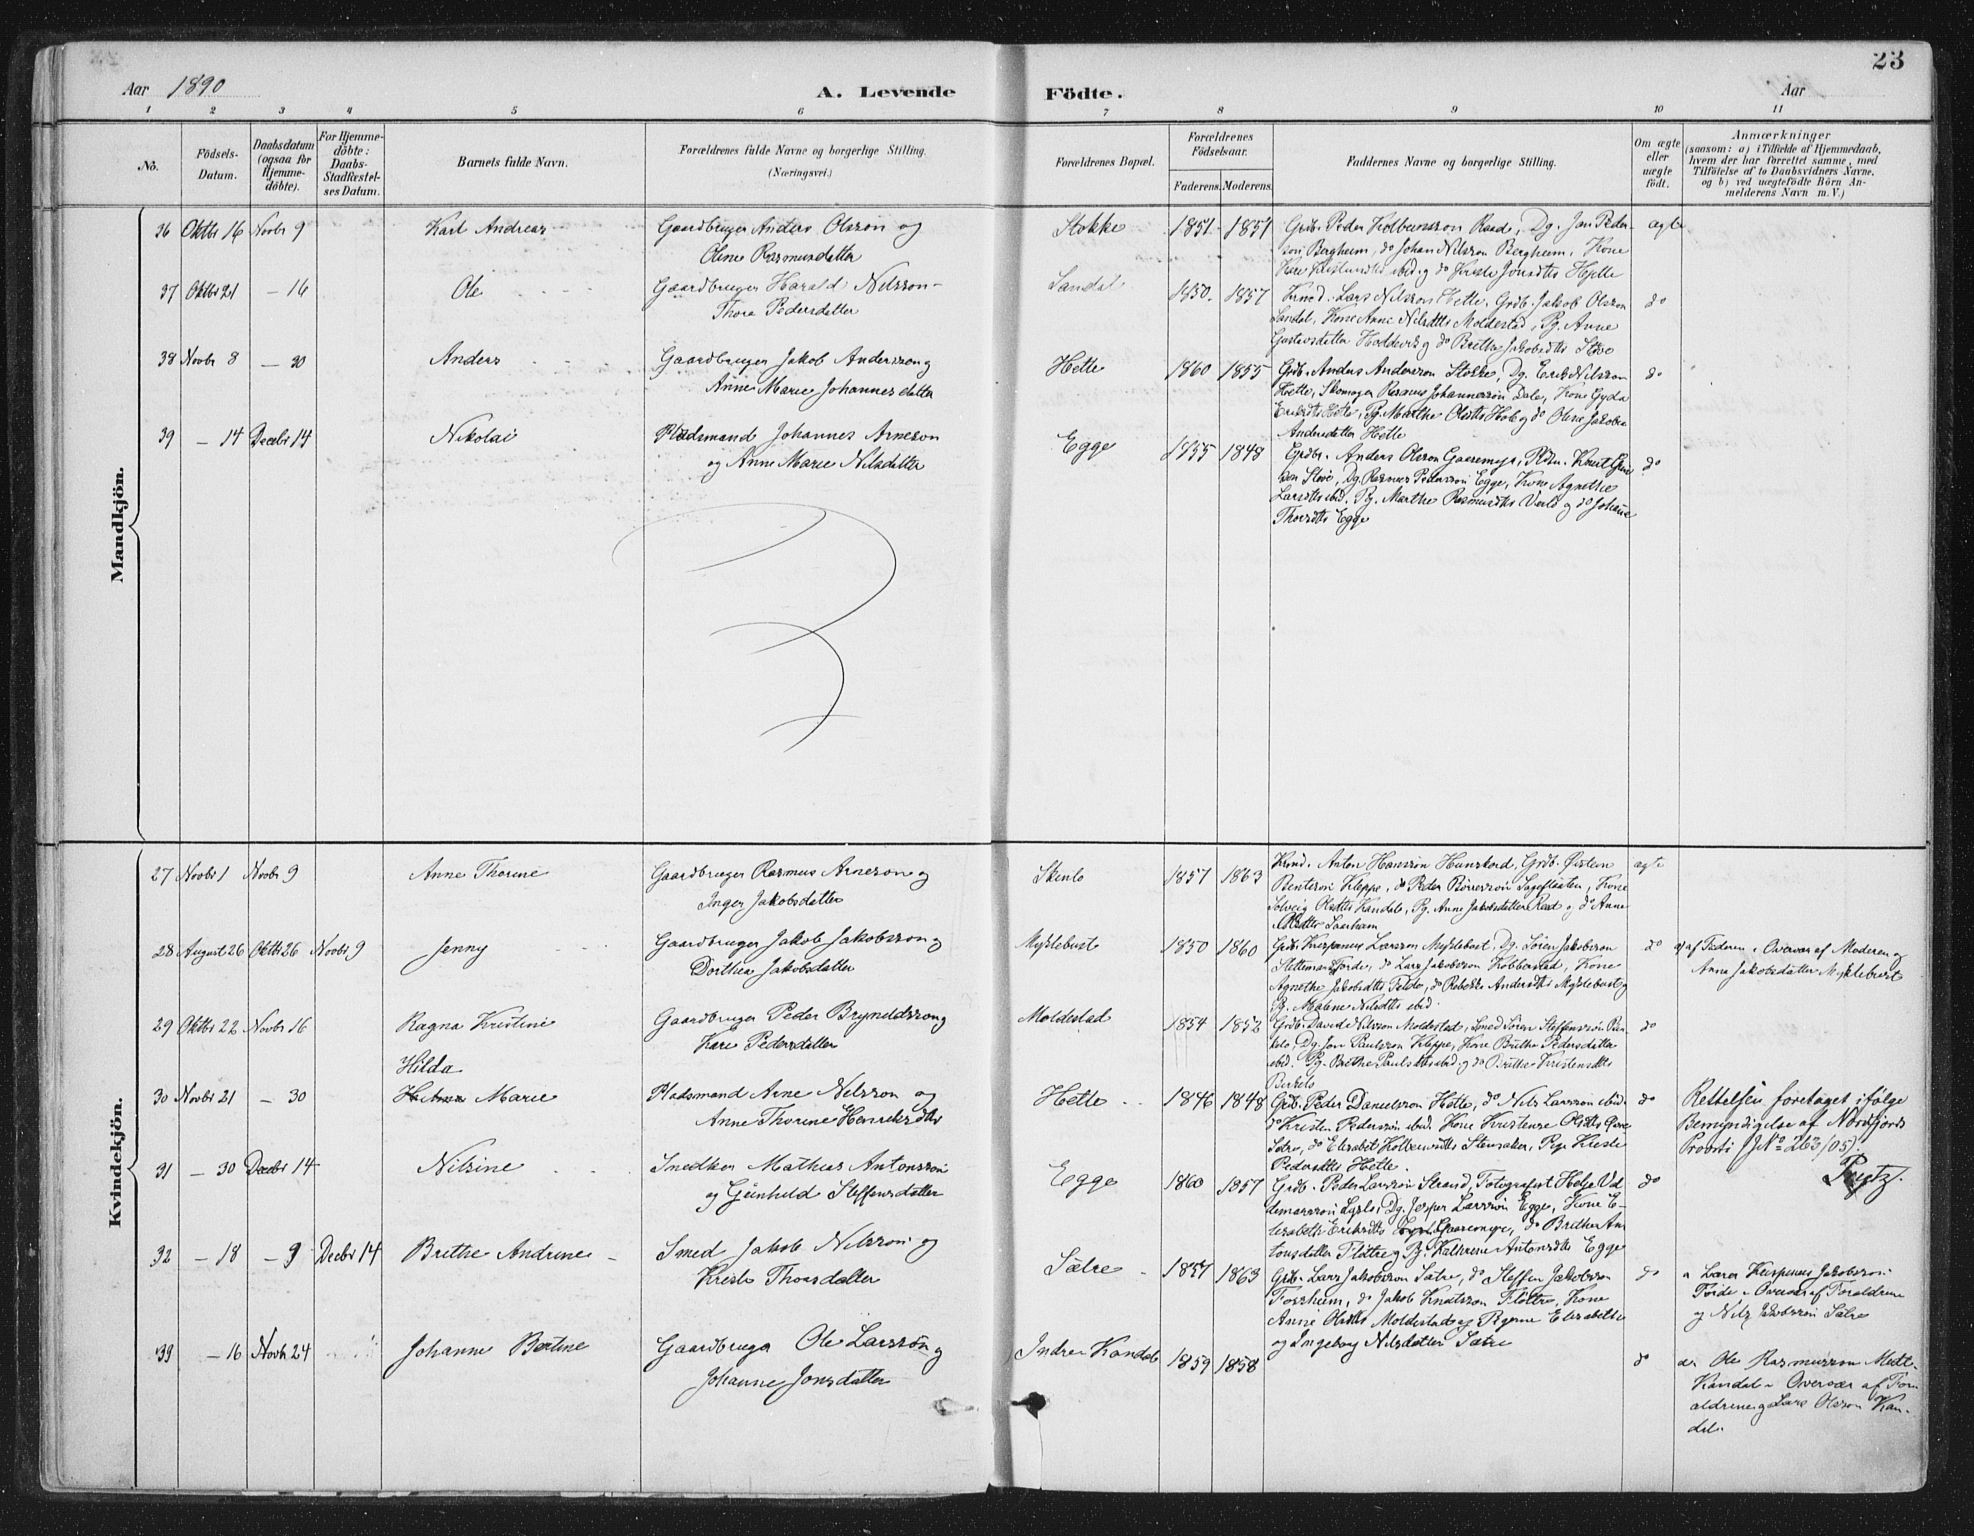 23
Aar 1890
A. Levende Födte.
Aar
1 2 3 4 5 6 7 8 9 10 11
No.
Födsels-Datum.
Daabsdatum (ogsaa for Hjemme-döbte).
For Hjemme-döbte: Daabs-Stadfæstel-ses Datum.
Barnets fulde Navn.
Forældrenes fulde Navne og borgerlige Stilling. (Næringsvei.)
Forældrenes Bopæl.
Forældrenes Födselsaar.
Faderens. Moderens.
Faddernes Navne og borgerlige Stilling.
Om ægte eller uægte födt.
Anmærkninger
(saasom: a) i Tilfælde af Hjemmedaab, hvem der har forrettet samme, med Tilföielse af to Daabsvidners Navne, og b) ved uægtefödte Börn An-melderens Navn m. V.)
Mandkjön.
36 Oktbr 16 Novbr 9 Karl Andreas Gaardbruger Anders Olsson og
Oline Rasmusdatter
Stokke 1851 1851 Grdb. Peder Kolbeinsson Raade, Dg. Jan Peder-
son Bergheim, do Johan Nilsson Bergheim, Kone
ibid. og do Kirsti Jonsdtts Hjelle
ægte
37 Oktbr 21 – 16 Ole Gaardbruger Harald Nilsson –
Thora Pedersdatter
Sandal 1850 1857 Lars Nilsson Hette, Grdb. Jakob Olsson
Sandal, Kone Anne Nilsdtts Moldestad, Pg. Anne
Gustavsdatter og do Brethe Jakobsdtts Støve
do
38 Novbr 8 – 30 Anders Gaardbruger Jakob Andersson og
Anne Marie Johannesdatter
Hette 1860 1855 Grdb. Anders Andersson Stokke, Dg. Erik Nilsson
Hette, Skomager Rasmus Johannesson Dale, Kone Gyda
Eriksdtts Hette, Pg. Marthe Olsdtts Hole og do Olina Jakobea
Andersdatter Hette
do
39 – 14 Decbr 14 Nikolai Pladsmand Johannes Arneson
og Anne Marie Nilsdatter
Egge 1855 1848 Grdbr. Anders Olsson Gaaremyr, Pldm. Knut
Støve, Dg. Rasmus Pedersson Egge, Kone Agnethe
Larsdtts ibid. Pg. Marthe Rasmusdtts og do Johanne
Thorsdtts Egge
do
Kvindekjön.
27 Novbr 1 Novbr 9 Anne Thorine Gaardbruger Rasmus Arneson og
Inger Jakobsdatter
Skenlo 1857 1863 Anton Hansson Hunskord, Grdb. Øistein
Bentsson Kleppe, do Peder Børresson Sageflaaten, Kone
Solveig Olsdtts Kandal, Pg. Anne Jakobsdatter Reed og do Anne
Olsdatter Sandhem
ægte
28 August 26 Oktbr 26 Novbr 9 Jenny Gaardbruger Jakob Jakobsson og
Dorthea Jakobsdatter
Myklebust 1850 1860 Grdb. Krispanus Larsson Myklebust, Dg. Søren Jakobsson
Førde, do Lars Jakobsson Kobberstad, Kone
Agnethe Jakobsdtts Førde, do Rebekka Andersdtts Myklebust og
Pg. Malene Nilsdtts ibid.
do
a) af Faderen i Overvær af Moderen og
Anna Jakobsdatter Myklebust
29 Oktbr 22 Novbr 16 Ragna Kristine Gaardbruger Peder Bryndelsson og
Kari Pedersdatter
Moldestad 1854 1852 Grdb. David Nilsson Moldestad, Smed Søren Steffensson Bir-
kelo, Dg. Jon Paulsson Kleppe, Kone Brithe Pedersdatter
ibid. Pg. Brethe Paulsdtts ibid. og do Brithe Kristensdtts
Birkelo
do
Hilda
30 Novbr 21 – 30 Marie Pladsmand Arne Nilsson og
Anne Thorine Henriksdtts
Hette 1846 1848 Grdb. Peder Danielsson Hette, do Nils Larsson ibid.
do Kristen Pedersson ibid. Kone Kristense Olsdtts
Sætre, do Elisabet Stensaker, Pige Kirsti
Pedersdtts Hette.
do
Rettelsen foretaget ifølge
Bemyndigelse af Nordfjords
Provsti J No 263/05).
31 – 30 Decbr 14 Nilsine Snedker Mathias Antonsson
og Gunhild Steffensdatter
Egge 1860 1857 Grdb. Peder Larsson Strand, Fotografist Helge Val-
demarsson, Dg. Jesper Larsson Egge, Kone E-
lisabeth Eriksdtts Gaaremyr, do Brethe An-
tonsdatter Fløtre og Pg. Kathrine Antonsdtts Egge
do
32 – 18 – 9 Decbr 14 Brethe Andrine Smed Jakob Nilsson og
Kristi Thorsdatter
Sætre 1857 1863 Grdb. Lars Jakobsson Sætre, do Steffen Jakobsson
Forsheim, do Jakob Knutsson Fløtre, Kone
Anne Olsdtts Moldestad og Pigerne Elisabethe
og Ingeborg Nilsdatter Sætre
do
a Lærer Krispanus Jakobsson
Førde i Overvær af Forældrene
og Nils Jakobsson Sætre
33 – 16 Novbr 24 Johanne Bertine Gaardbruger Ole Larsson og
Johanne Jonsdatter
Indre Kandal 1859 1858 do
a Ole Rasmusson Midt-
Kandal i Overvær af For-
ældrene og Lars Olsson Kan-
dal.